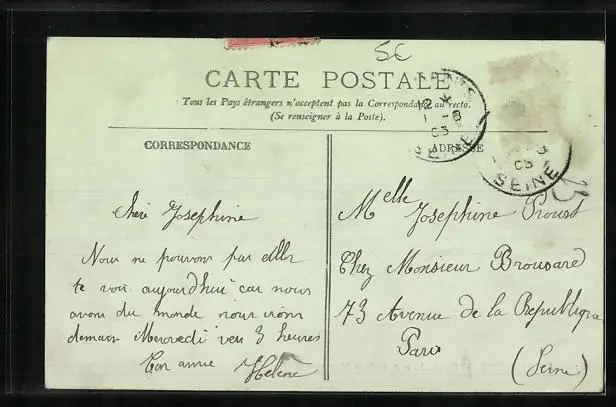 5€
CARTE POSTALE
Tous les Pays étrangers n'acceptent pas la Correspondance au recto.
(Se renseigner à la Poste).
CORRESPONDANCE
ADRESSE
SEINE
SEINE
Chère Josephine
Nous ne pouvons pas aller
te voir aujourd'hui car nous
avons du monde nous irons
demain Mercredi vers 3 heures
Ton amie
Helene
Melle Josephine Proust
Chez Monsieur Brousard
73 Avenue de la Republique
Paris
(Seine)